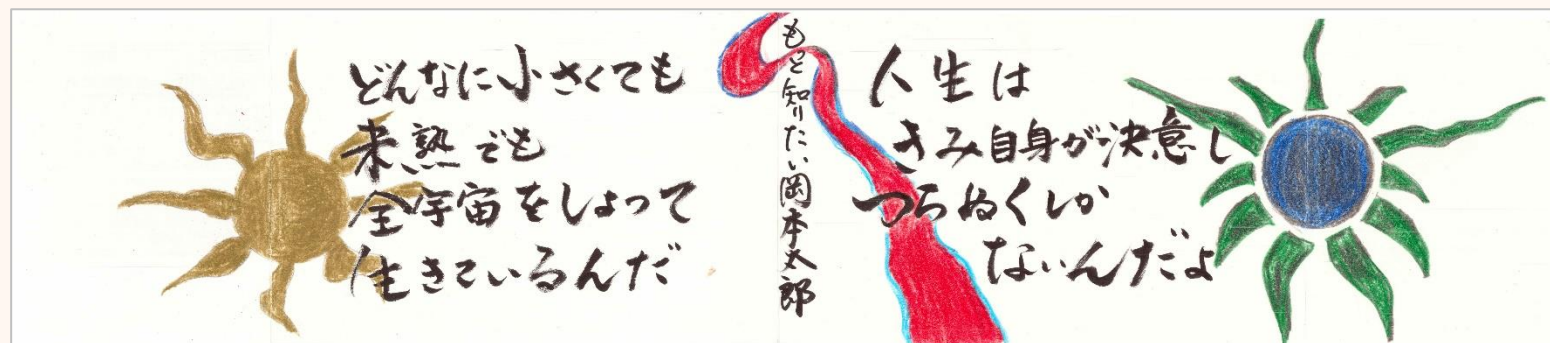 どんなに小さくても
未熟でも
全宇宙をしょって
生きているんだ
もっと知りたい岡本太郎
人生は
きみ自身が決意し
つらぬくしか
ないんだよ